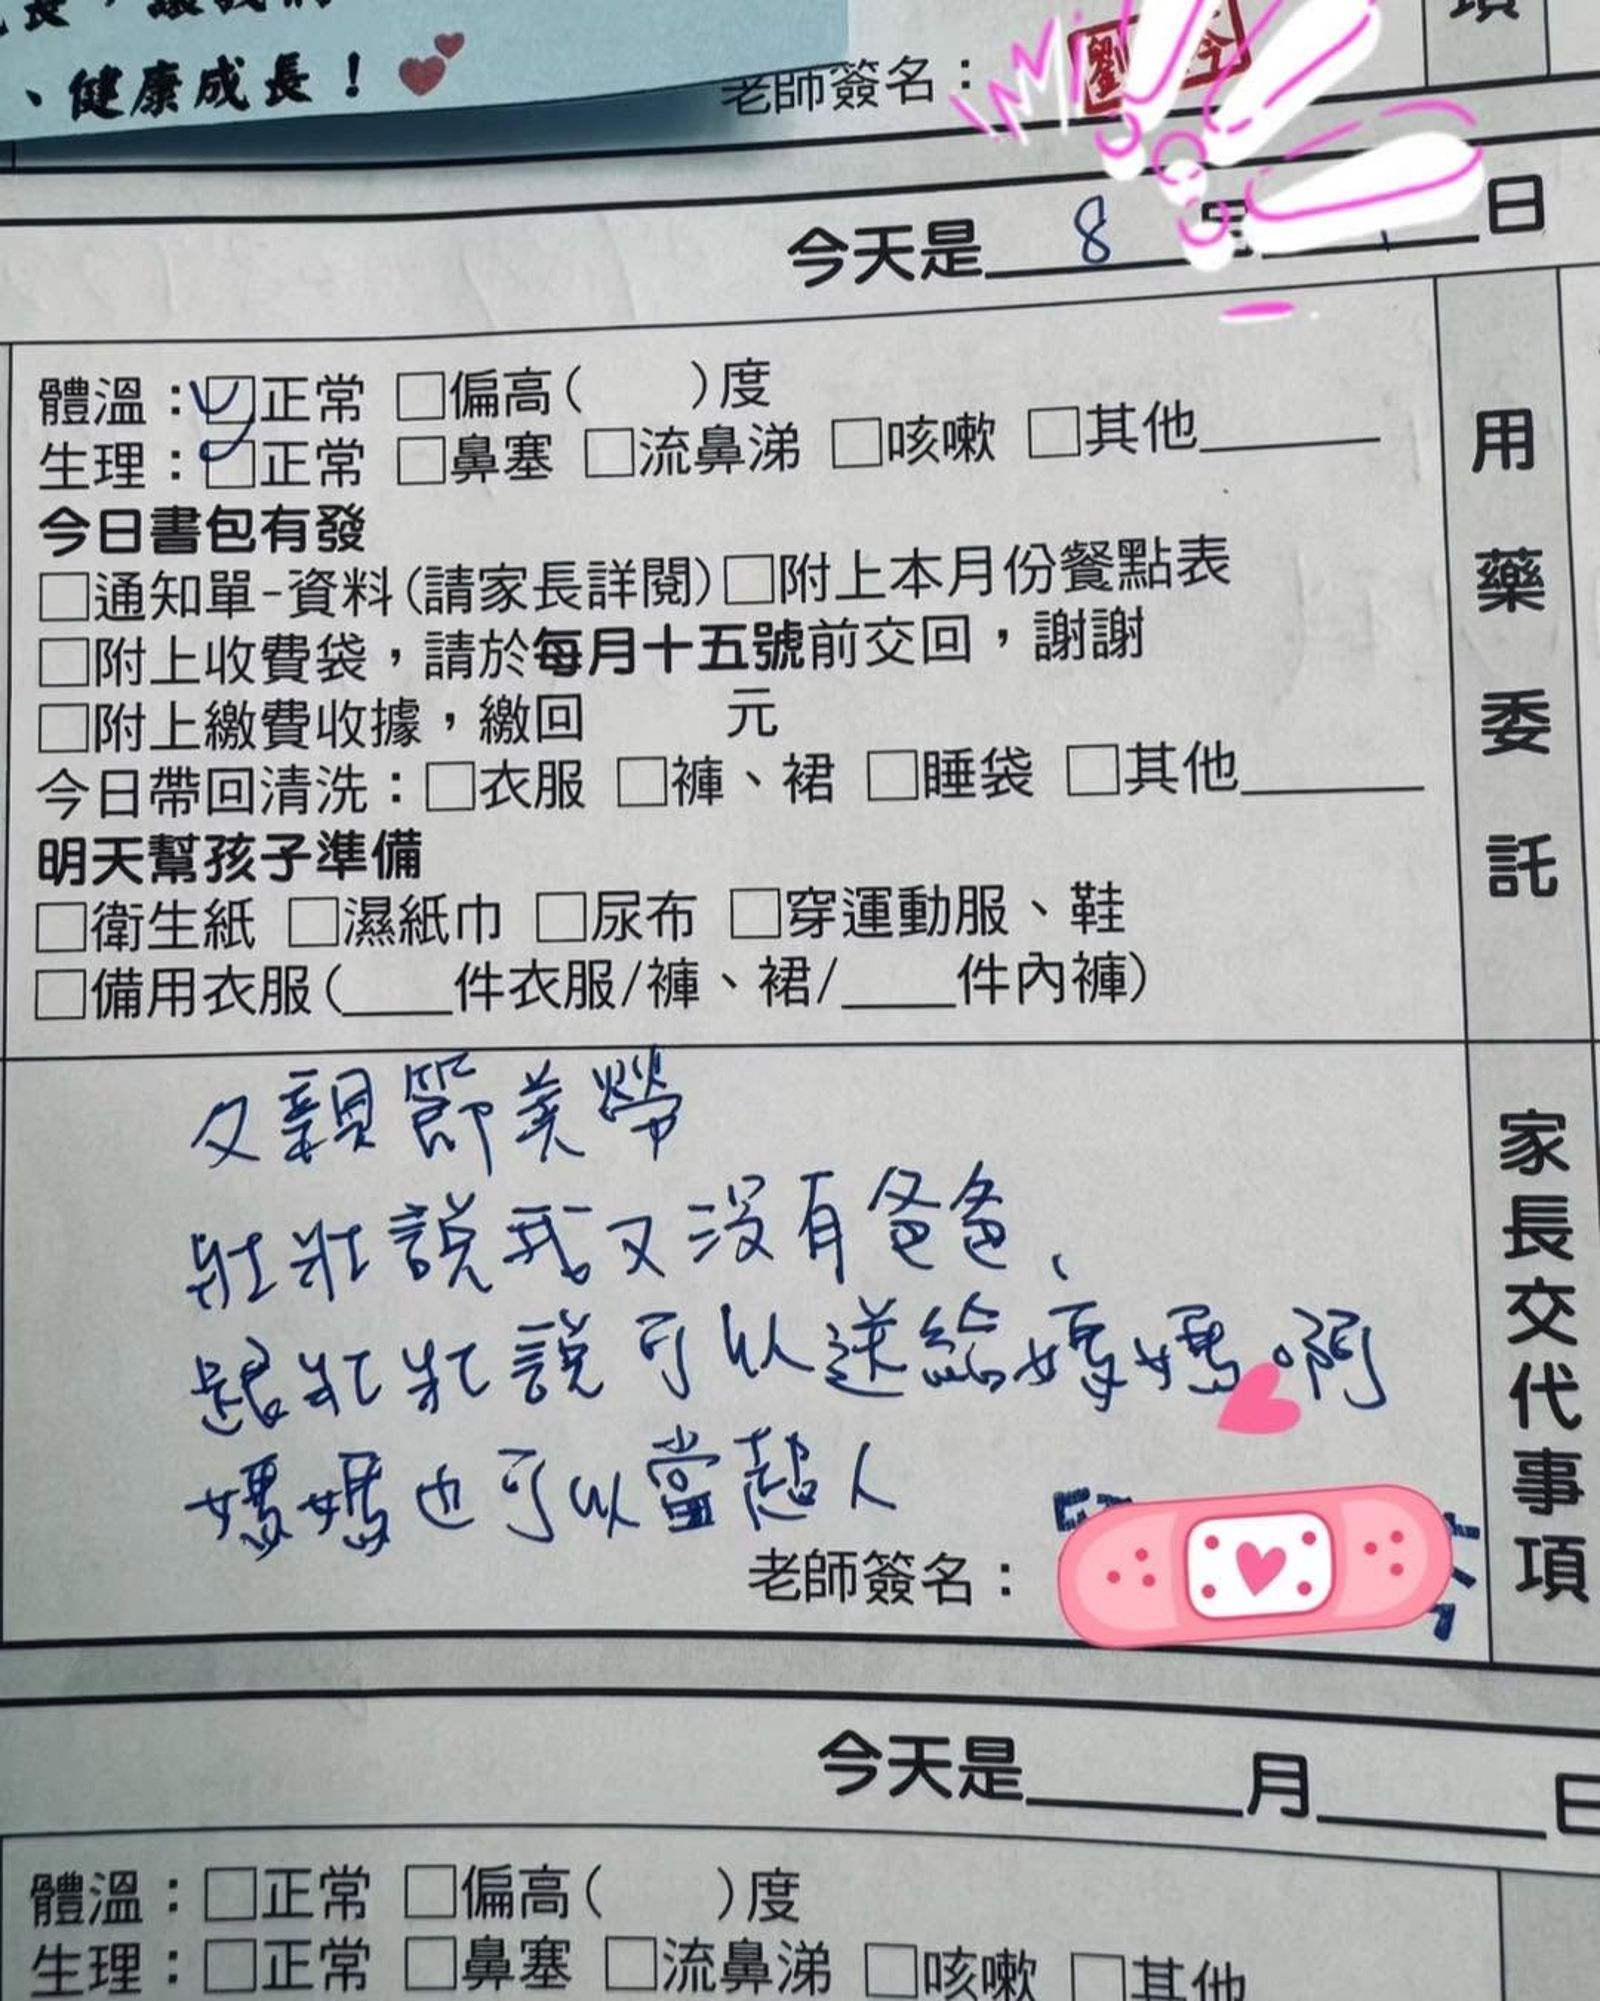 、健康成長！
老師簽名：
今天是 8 日
體溫：☑正常 □偏高( )度
生理：☑正常 □鼻塞 □流鼻涕 □咳嗽 □其他
今日書包有發
□通知單-資料(請家長詳閱) □附上本月份餐點表
□附上收費袋，請於每月十五號前交回，謝謝
□附上繳費收據，繳回 元
今日帶回清洗：□衣服 □褲、裙 □睡袋 □其他
明天幫孩子準備
□衛生紙 □濕紙巾 □尿布 □穿運動服、鞋
□備用衣服(___件衣服/褲、裙/___件內褲)
用藥委託
父親節美勞
壯壯說我又沒有爸爸、
跟壯壯說可以送給媽媽啊
媽媽也可以當超人
老師簽名：
家長交代事項
今天是 月 日
體溫：□正常 □偏高( )度
生理：□正常 □鼻塞 □流鼻涕 □咳嗽 □其他